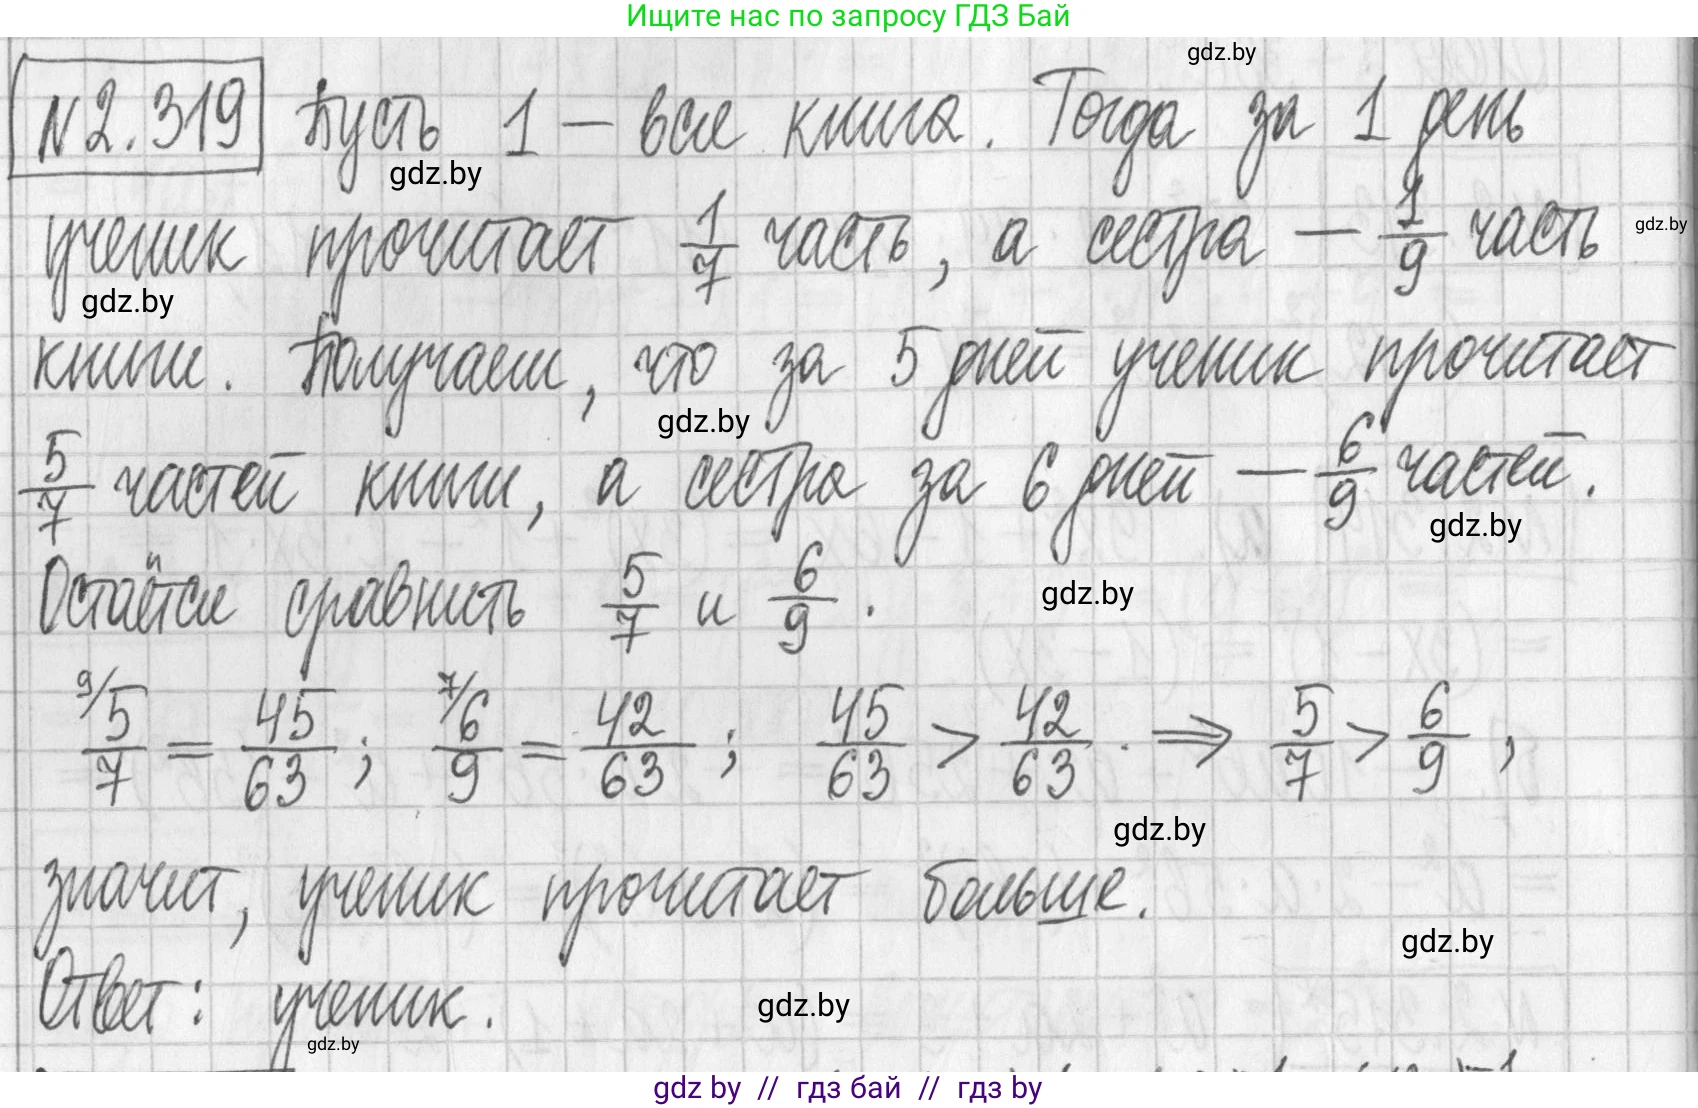 Ищите нас по запросу ГДЗ Бай
gdz.by
№2.319 Пусть 1 – вся книга. Тогда за 1 день
gdz.by
ученик прочитает 1/7 часть, а сестра – 1/9 часть
gdz.by
gdz.by
книги. Получаем, что за 5 дней ученик прочитает
gdz.by
5/7 частей книги, а сестра за 6 дней – 6/9 частей.
gdz.by
Остаётся сравнить 5/7 и 6/9.
gdz.by
9/ 5/7 = 45/63; 7/ 6/9 = 42/63; 45/63 > 42/63. ⇒ 5/7 > 6/9,
gdz.by
значит, ученик прочитает больше.
gdz.by
Ответ: ученик.
gdz.by
gdz.by
gdz by // гдз бай // гдз by